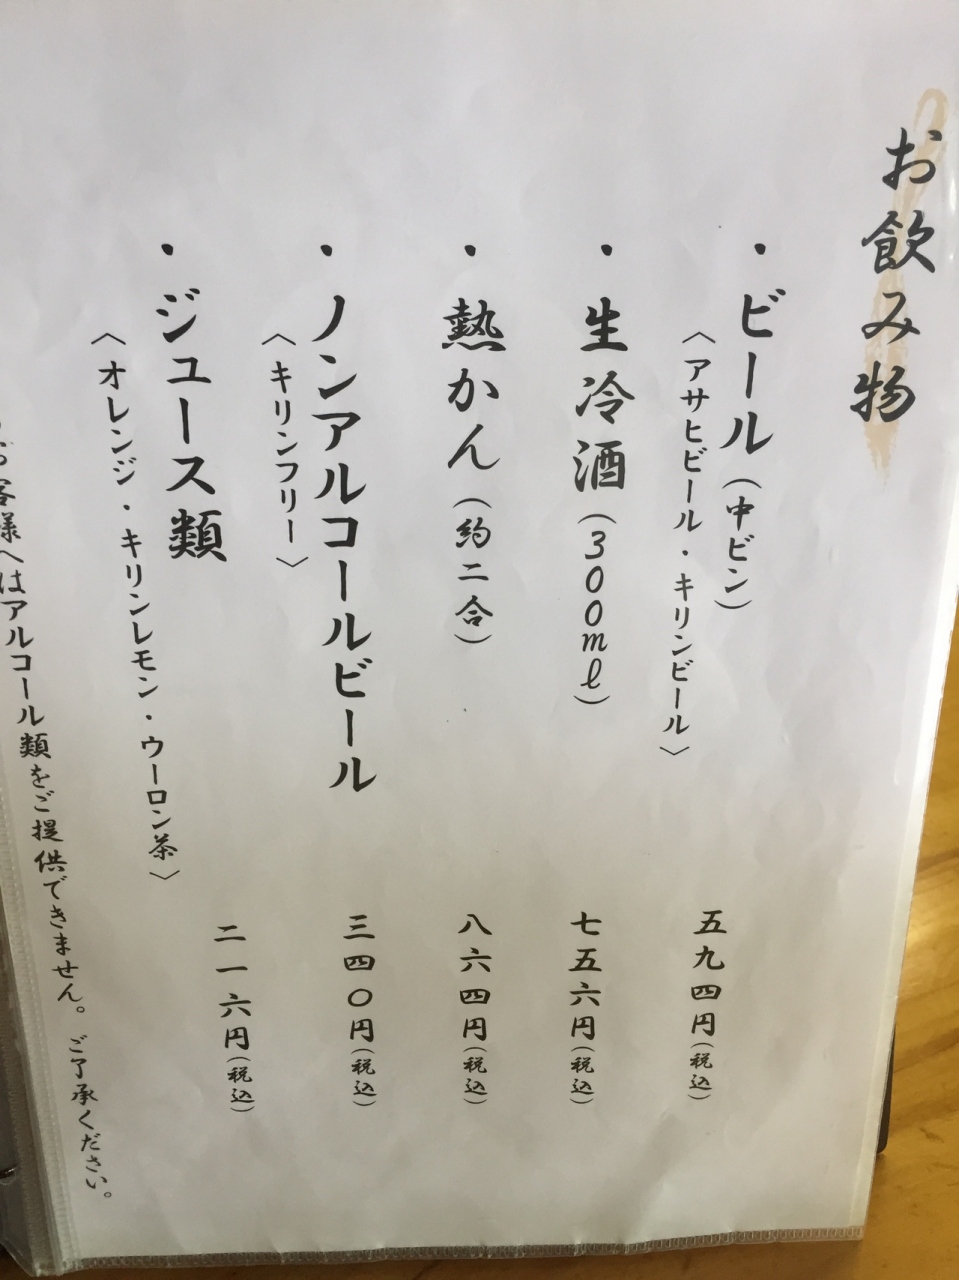 お飲み物
・ビール（中ビン）
〈アサヒビール・キリンビール〉
五九四円（税込）
・生冷酒（300ml）
七五六円（税込）
・熱かん（約二合）
八六四円（税込）
・ノンアルコールビール
〈キリンフリー〉
三四〇円（税込）
・ジュース類
〈オレンジ・キリンレモン・ウーロン茶〉
二一六円（税込）
お客様へはアルコール類をご提供できません。ご了承ください。